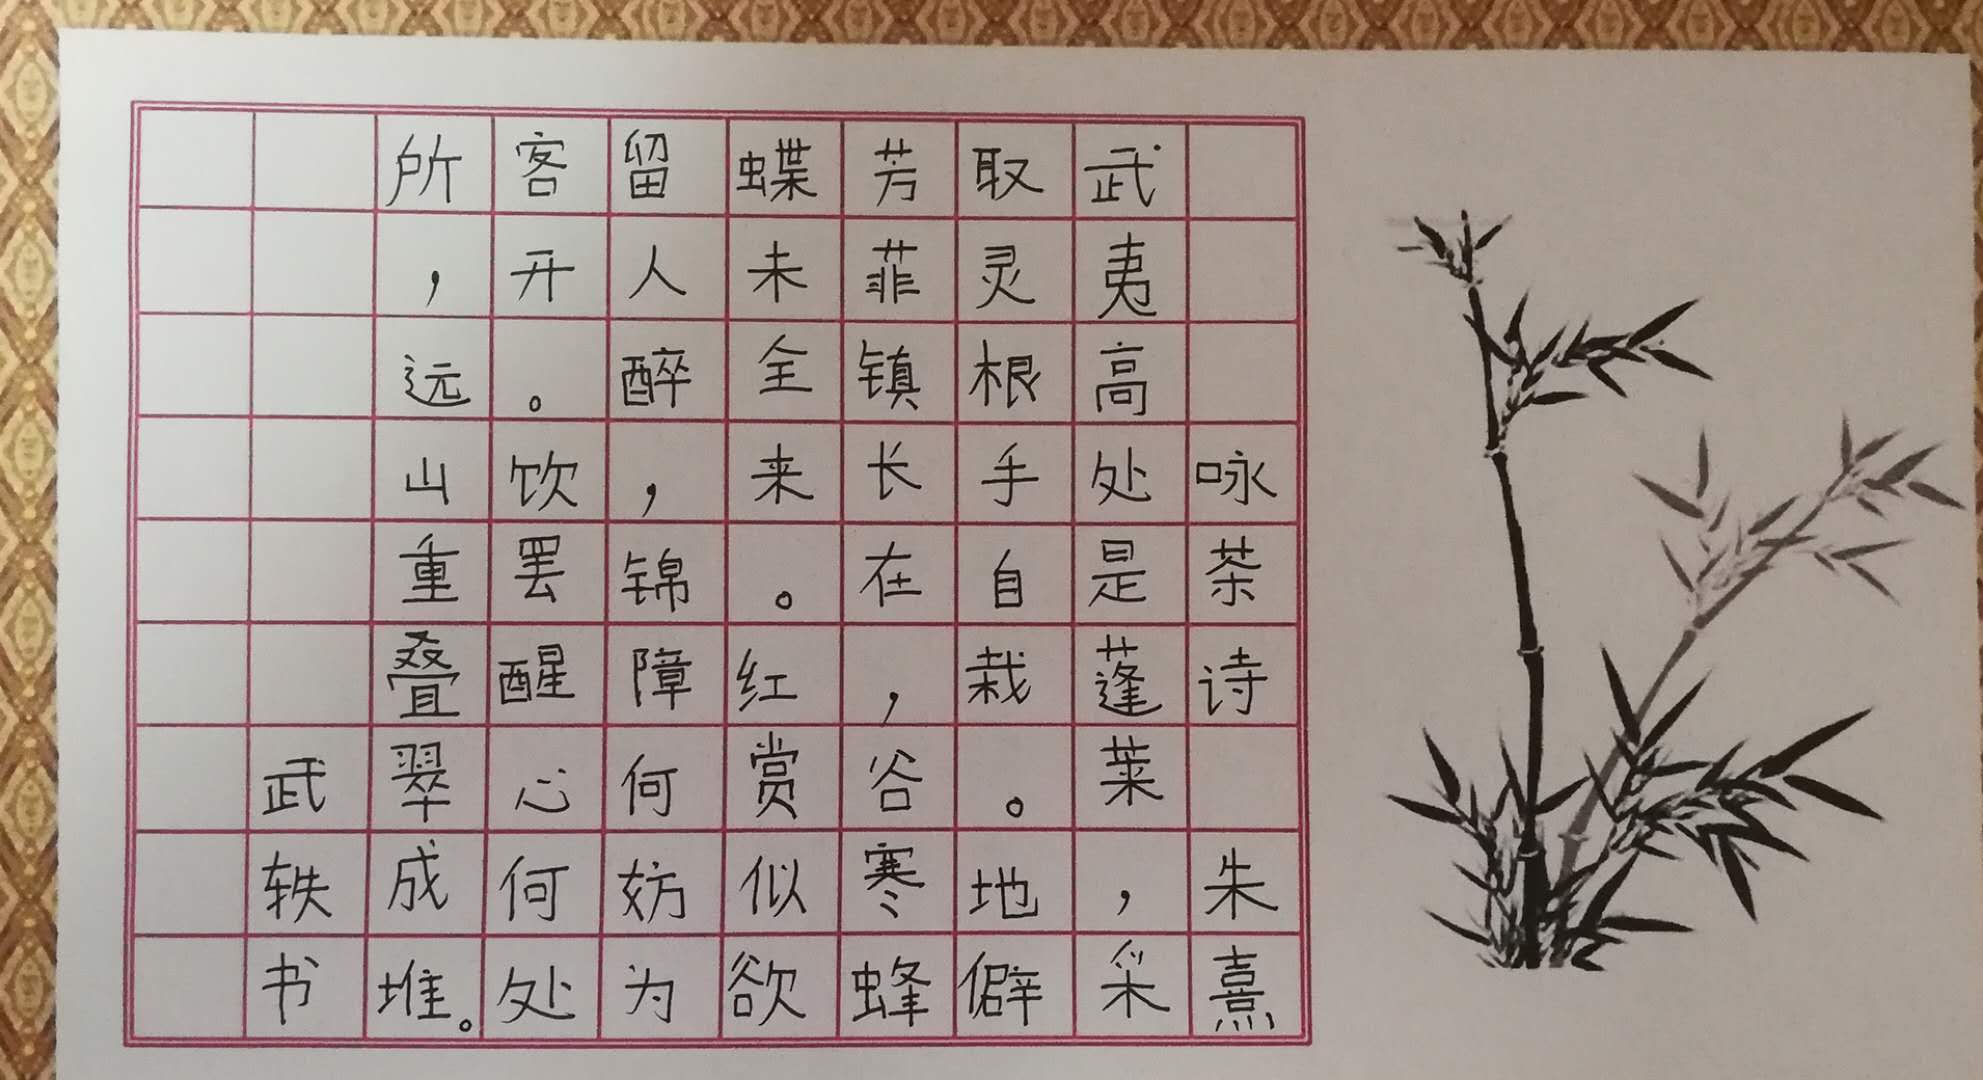 咏茶诗 朱熹
武夷高处是蓬莱，采
取灵根手自栽。地僻
芳菲镇长在，谷寒蜂
蝶未全来。红赏似欲
留人醉，锦障何妨为
客开。饮罢醒心何处
所，远山重叠翠成堆。
武轶书